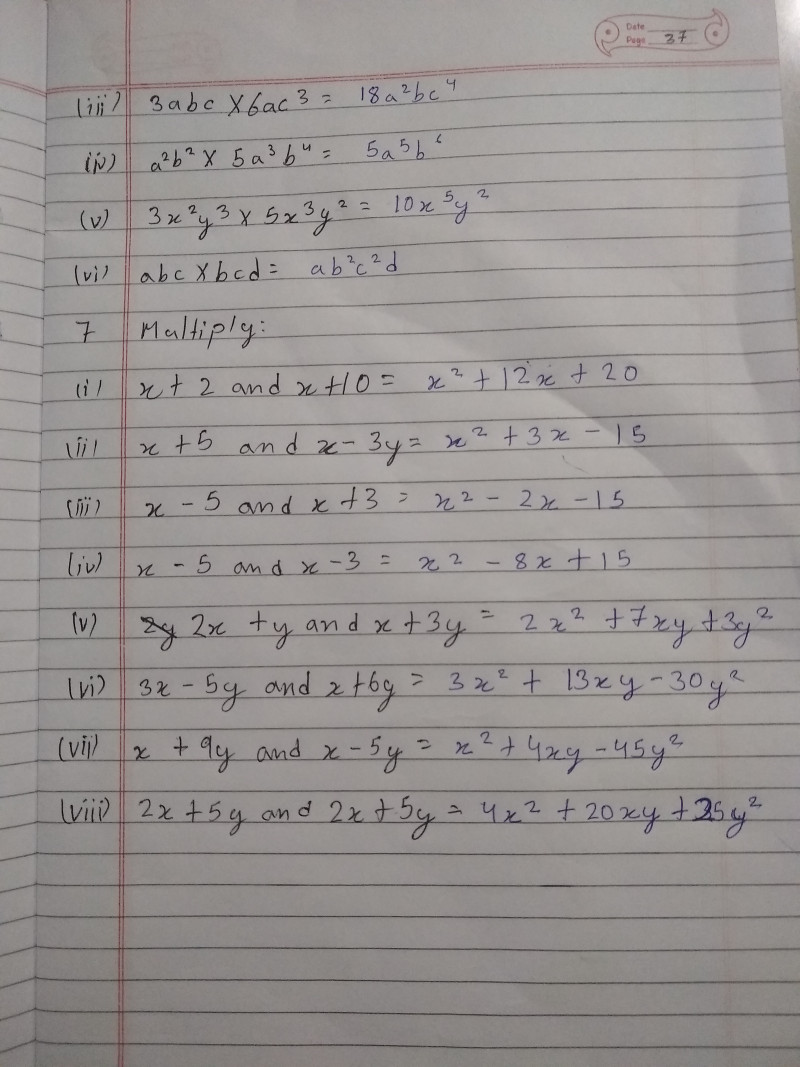 Date
Page 37
(iii) 3abc × 6ac³ = 18a²bc⁴
(iv) a²b² × 5a³b⁴ = 5a⁵b⁶
(v) 3x²y³ × 5x³y² = 10x⁵y²
(vi) abc × bcd = ab²c²d
7 Multiply:
(i) x + 2 and x + 10 = x² + 12x + 20
(ii) x + 5 and x - 3y = x² + 3x - 15
(iii) x - 5 and x + 3 = x² - 2x - 15
(iv) x - 5 and x - 3 = x² - 8x + 15
(v) 2x + y and x + 3y = 2x² + 7xy + 3y²
(vi) 3x - 5y and x + 6y = 3x² + 13xy - 30y²
(vii) x + 9y and x - 5y = x² + 4xy - 45y²
(viii) 2x + 5y and 2x + 5y = 4x² + 20xy + 25y²